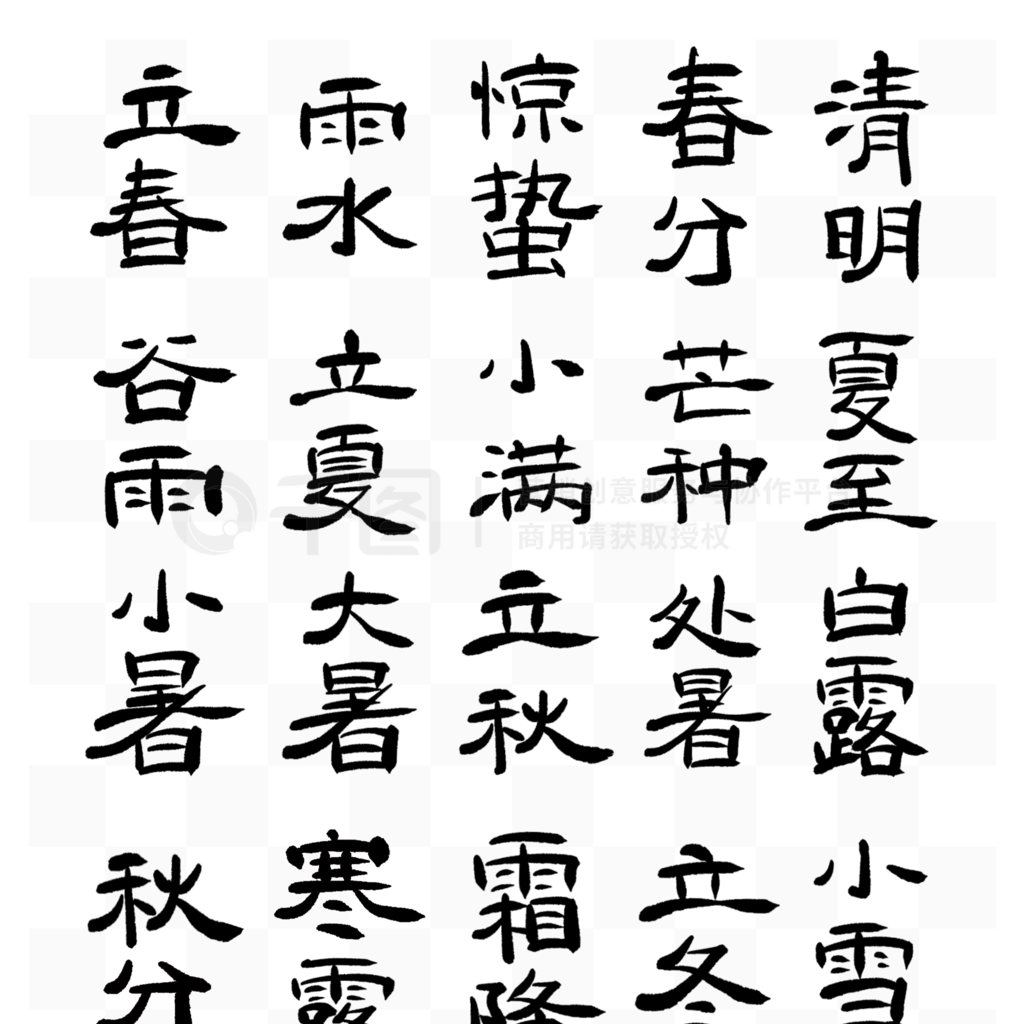 立春 雨水 惊蛰 春分 清明
谷雨 立夏 小满 芒种 夏至
小暑 大暑 立秋 处暑 白露
秋分 寒露 霜降 立冬 小雪
千图
创意 协作平台
商用请获取授权